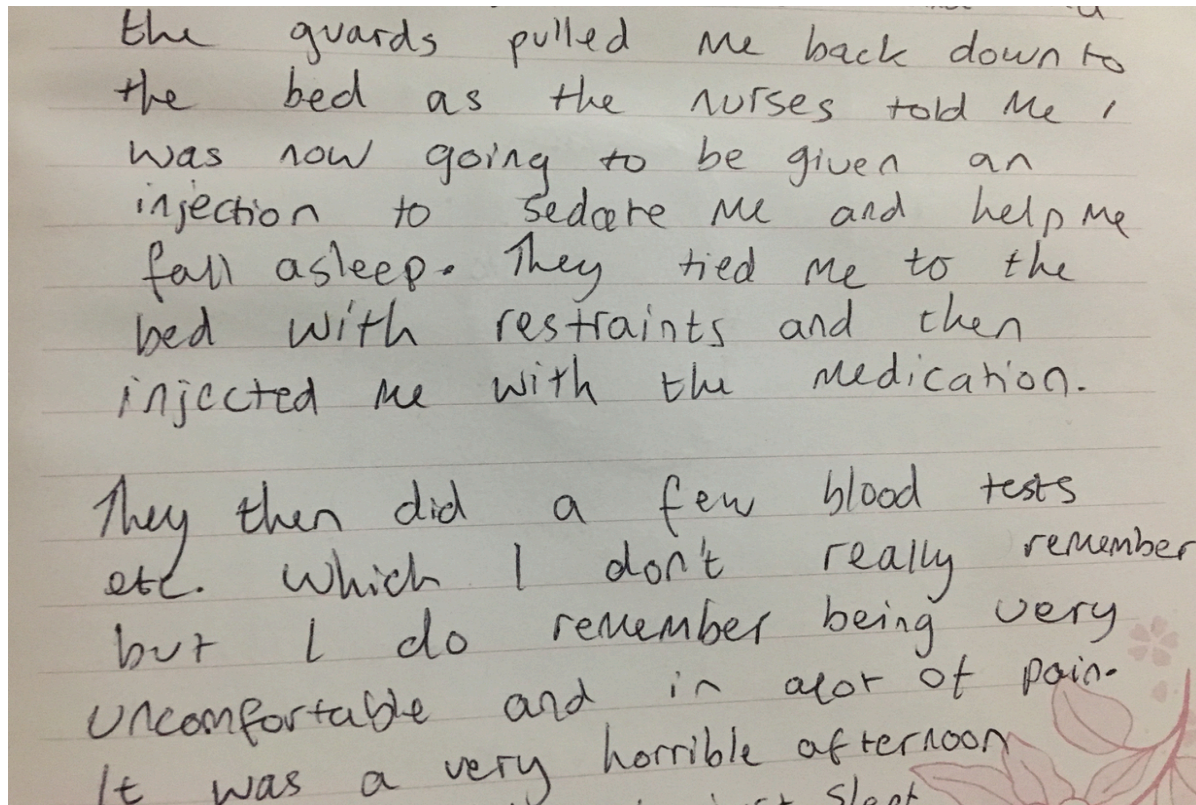 the guards pulled me back down to
the bed as the nurses told me I
was now going to be given an
injection to sedate me and help me
fall asleep. They tied me to the
bed with restraints and then
injected me with the medication.
They then did a few blood tests
etc. which I don't really remember
but I do remember being very
uncomfortable and in alot of pain.
It was a very horrible afternoon
slept